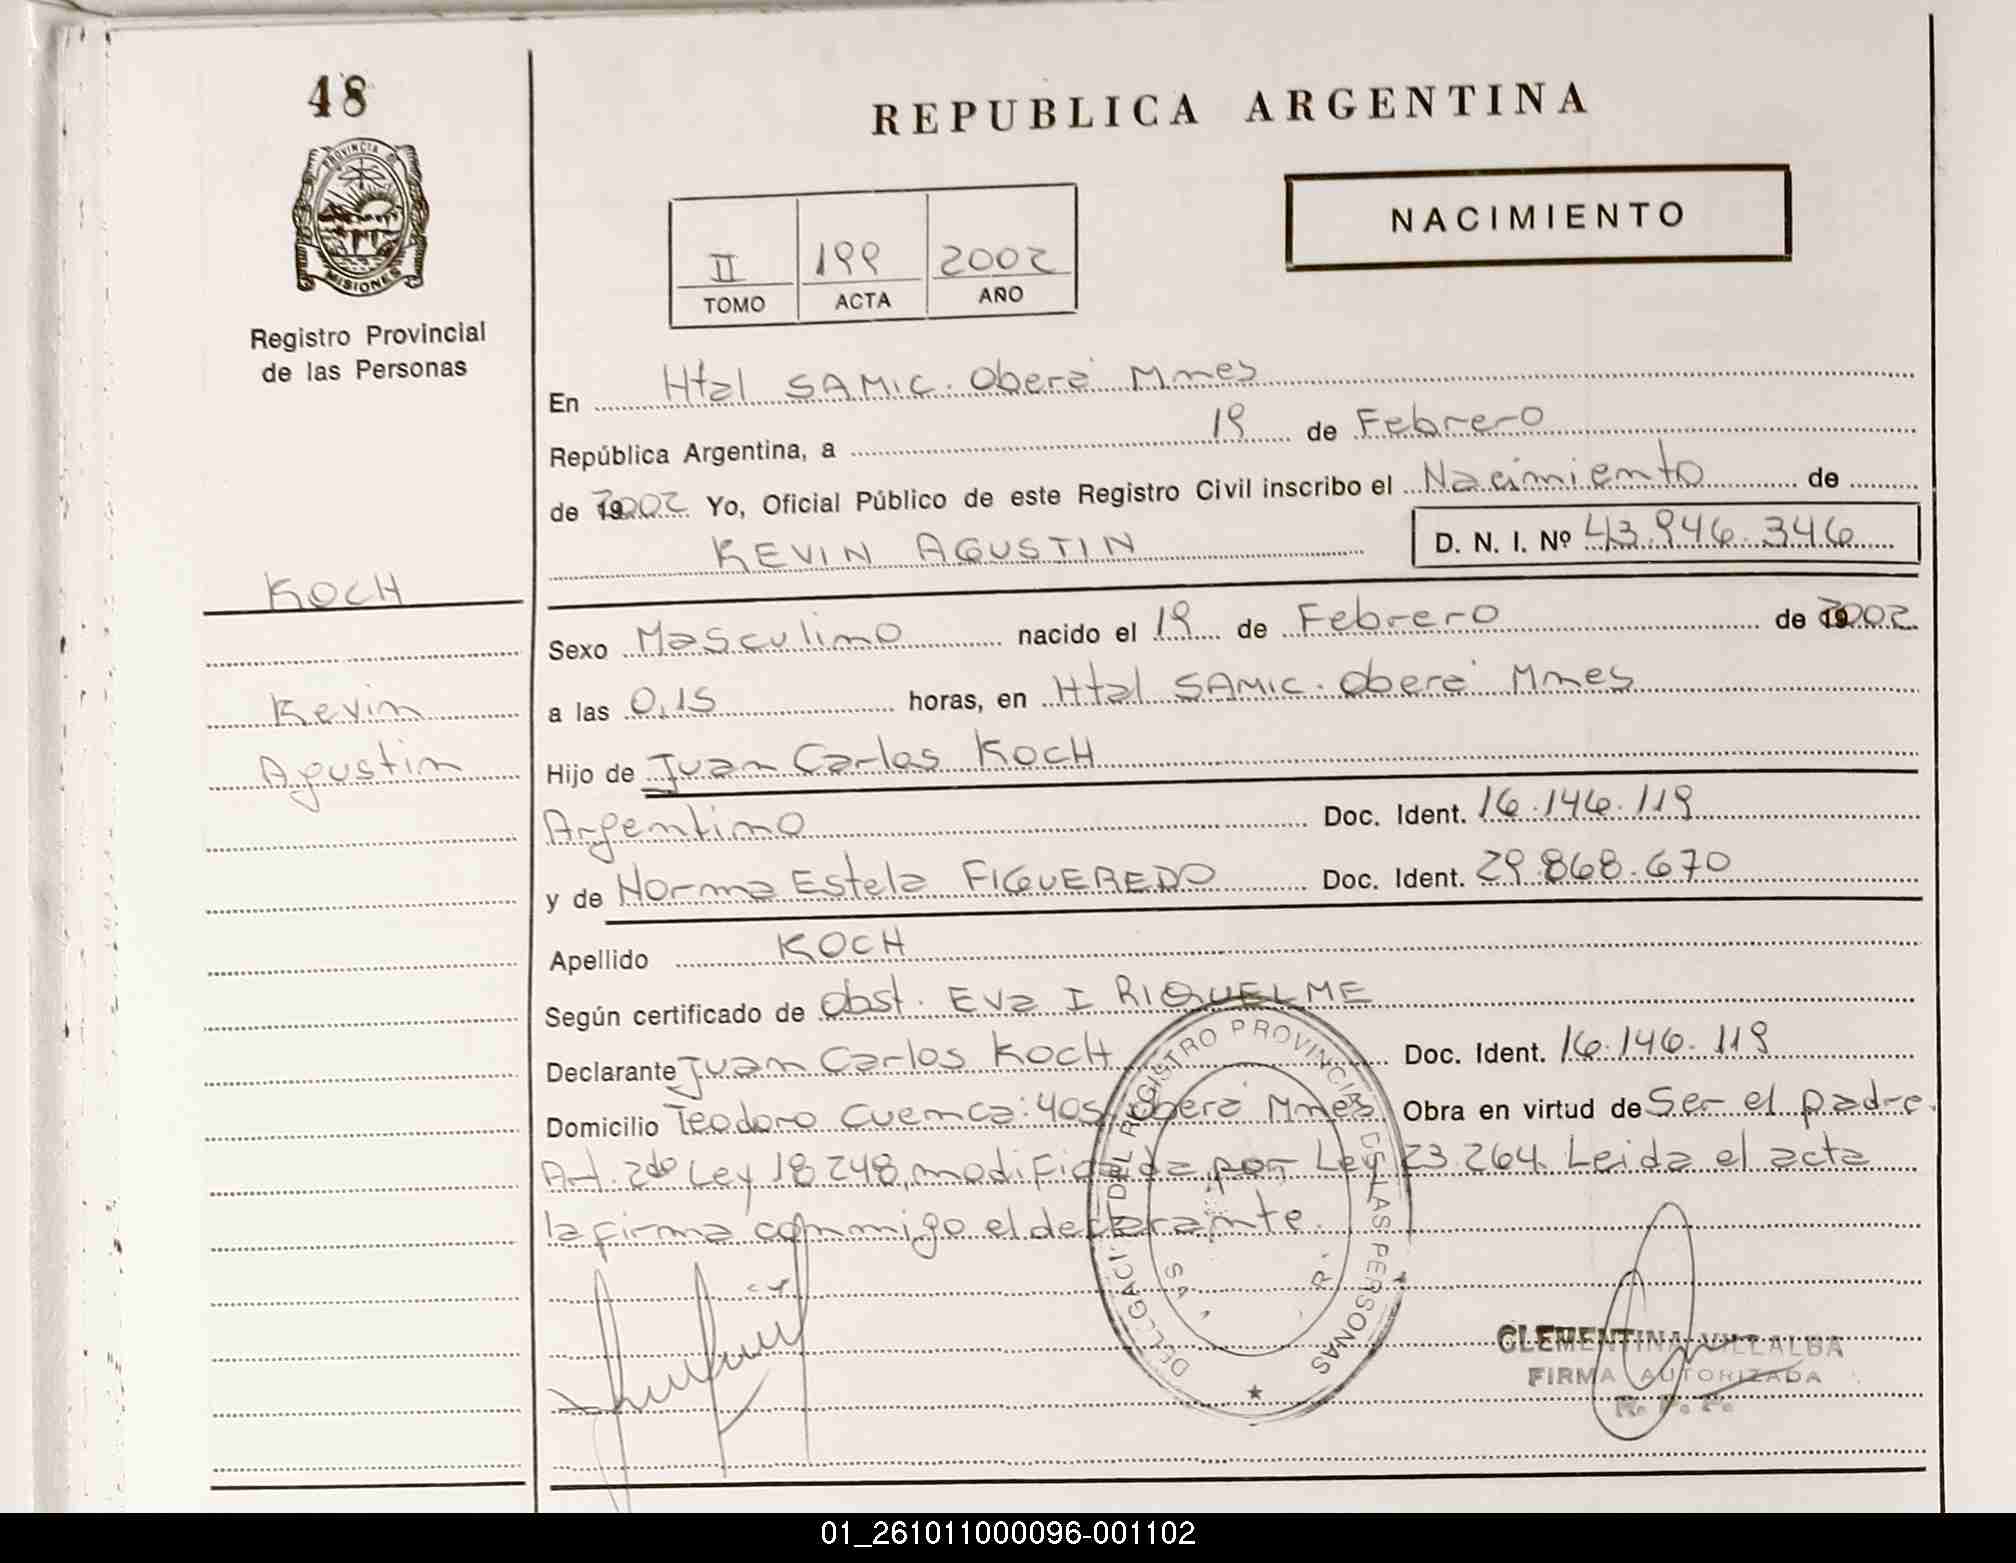 48
PROVINCIA DE
MISIONES
Registro Provincial
de las Personas
REPUBLICA ARGENTINA
NACIMIENTO
II 199 2002
TOMO ACTA AÑO
En Htal SAMIC. Oberá Mnes
República Argentina, a 19 de Febrero
de 2002 Yo, Oficial Público de este Registro Civil inscribo el Nacimiento de
KEVIN AGUSTIN D. N. I. Nº 43.946.346
KOCH
Kevin
Agustin
Sexo Masculino nacido el 19 de Febrero de 2002
a las 0,15 horas, en Htal SAMIC. Oberá Mnes
Hijo de Juan Carlos KOCH
Argentino Doc. Ident. 16.146.119
y de Norma Estela FIGUEREDO Doc. Ident. 29.868.670
Apellido KOCH
Según certificado de Obst. Eva I RIQUELME
Declarante Juan Carlos KOCH Doc. Ident. 16.146.119
Domicilio Teodoro Cuenca: 405. Oberá Mnes Obra en virtud de Ser el padre.
Art. 2do Ley 18248, modificada por Ley 23.264. Leida el acta
la firma conmigo el declarante.
DEL REGISTRO PROVINCIAL DE LAS PERSONAS
CLEMENTINA VILLALBA
FIRMA AUTORIZADA
R. P. P.
01_261011000096-001102